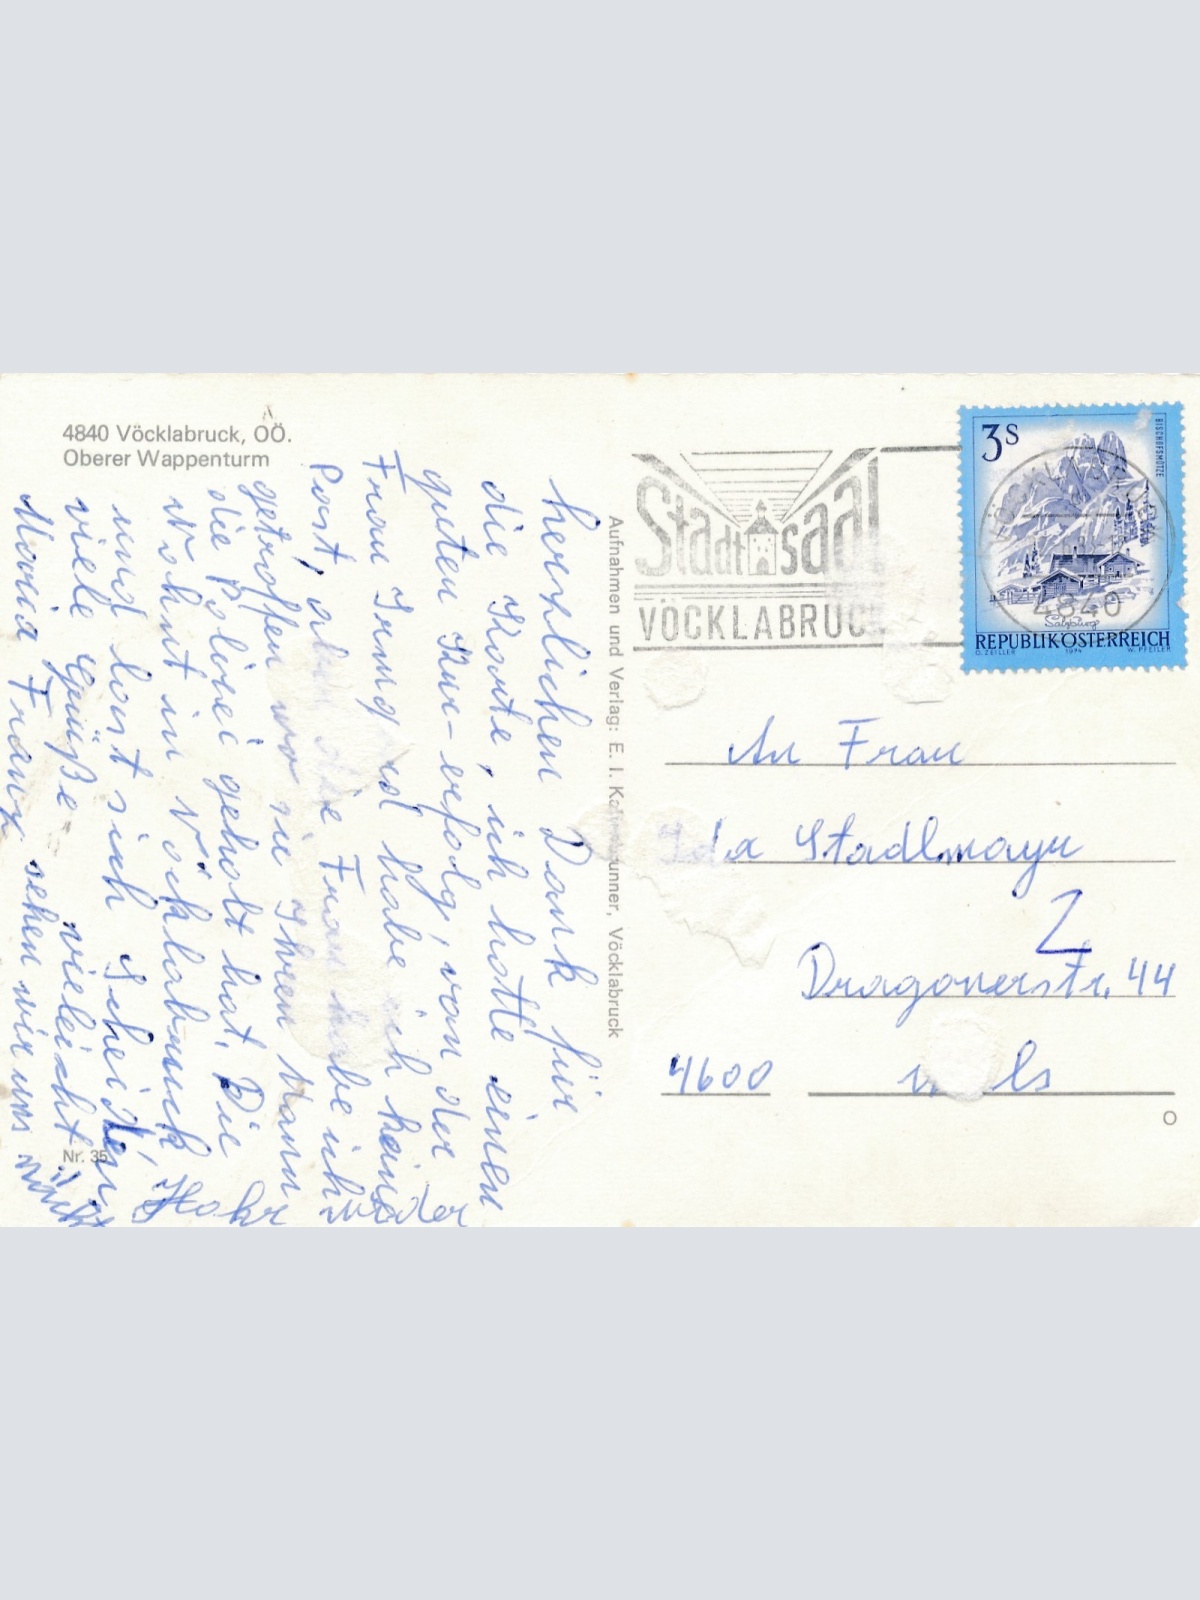 4840 Vöcklabruck, OÖ.
Oberer Wappenturm
herzlichen Dank für
die Karte, ich hatte einen
guten Kur-erfolg, von der
Frau Irmgard habe ich keine
Post, die Frau habe ich wieder
getroffen wo sie ihren Mann
die Polizei geholt hat. Die
Wohnt in Vöcklabruck
und lasst sich Scheiden,
viele Grüße vieleicht
Maria Franz sehen wir uns
Nr. 35
Aufnahmen und Verlag: E. I. unner, Vöcklabruck
Stadtsaal
VÖCKLABRUC
3S
BISCHOFSMÜTZE
4840
Salzburg
REPUBLIK ÖSTERREICH
O. ZEILLER 1974 W. PFEILER
An Frau
Ida Stadlmayr
Dragonerstr. 44
4600 Wels
O